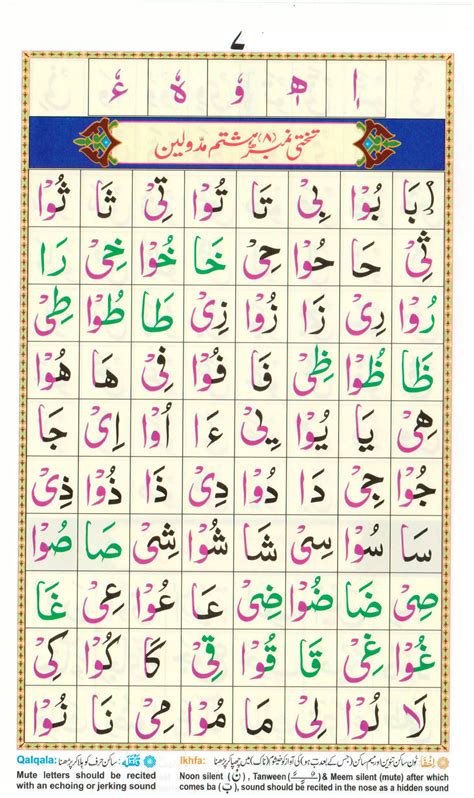 ۷
اٖ ھٖ وٗ هٗ ءٗ
تختی نمبر (۸) ہشتم مدّولین
بَا بُوْا بِیْ تَا تُوْا تِیْ ثَا ثُوْا
ثِیْ حَا حُوْا حِیْ خَا خُوْا خِیْ رَا
رُوْا رِیْ زَا زُوْا زِیْ طَا طُوْا طِیْ
ظَا ظُوْا ظِیْ فَا فُوْا فِیْ هَا هُوْا
هِیْ يَا يُوْا يِیْ ءَا اُوْا اِیْ جَا
جُوْا جِیْ دَا دُوْا دِیْ ذَا ذُوْا ذِیْ
سَا سُوْا سِیْ شَا شُوْا شِیْ صَا صُوْا
صِیْ ضَا ضُوْا ضِیْ عَا عُوْا عِیْ غَا
غُوْا غِیْ قَا قُوْا قِیْ كَا كُوْا كِیْ
لَا لُوْا لِیْ مَا مُوْا مِیْ نَا نُوْا
Qalqala: قَلْقَلَہ: ساکن حرف کو ہلا کر پڑھنا
Mute letters should be recited
with an echoing or jerking sound
Ikhfa: اِخفَا:
Noon silent (نْ), Tanween ( ً ٍ ٌ ) & Meem silent (mute) after which
comes ba (ب), sound should be recited in the nose as a hidden sound